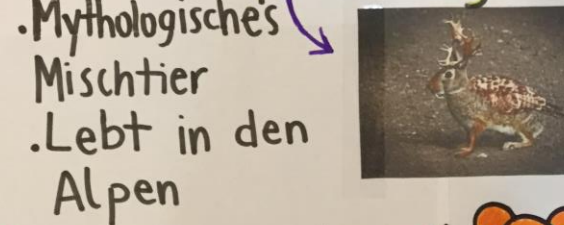 .Mythologisches
Mischtier
.Lebt in den
Alpen